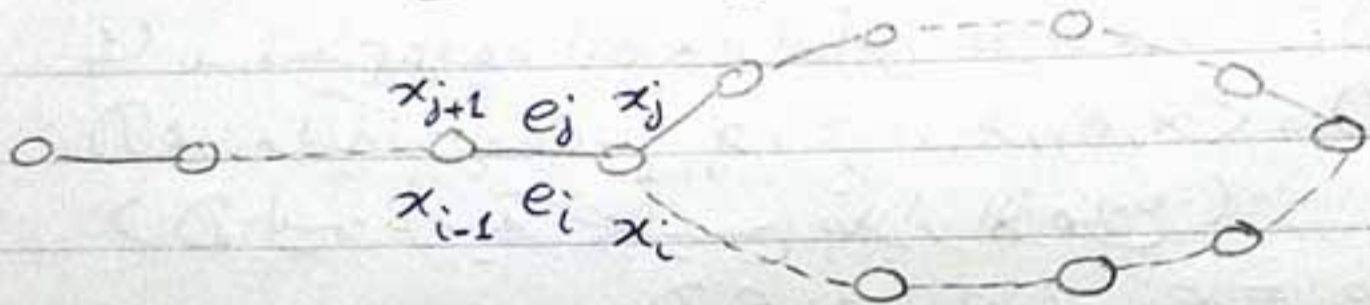 x_{j+1} e_j x_j
x_{i-1} e_i x_i